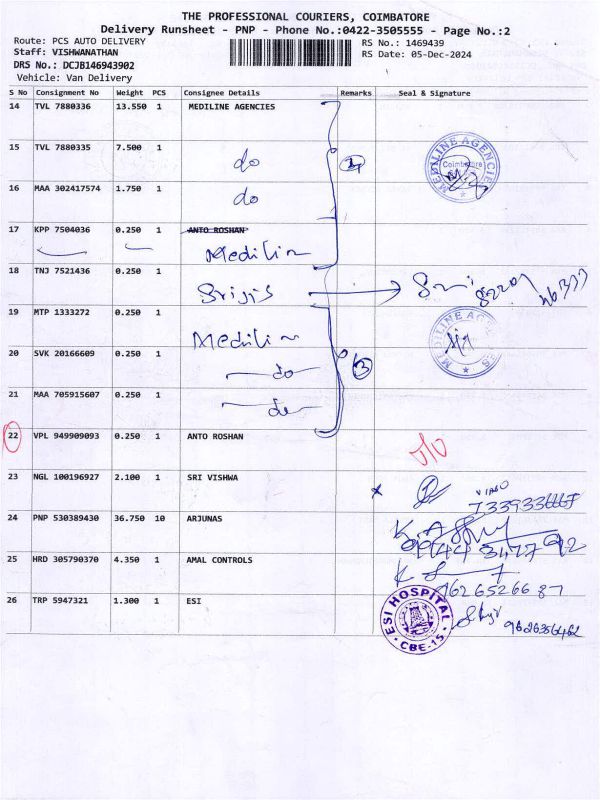 THE PROFESSIONAL COURIERS, COIMBATORE
Delivery Runsheet - PNP - Phone No.:0422-3505555 - Page No.:2
Route: PCS AUTO DELIVERY
RS No.: 1469439
Staff: VISHWANATHAN
RS Date: 05-Dec-2024
DRS No.: DCJB146943902
Vehicle: Van Delivery
S No Consignment No Weight PCS Consignee Details Remarks Seal & Signature
14 TVL 7880336 13.550 1 MEDILINE AGENCIES
15 TVL 7880335 7.500 1 do
MEDILINE AGENCIES
Coimbatore
16 MAA 302417574 1.750 1 do
17 KPP 7504036 0.250 1 ANTO ROSHAN
Medilin
18 TNJ 7521436 0.250 1
19 MTP 1333272 0.250 1 Medilin
MEDILINE AGENCIES
20 SVK 20166609 0.250 1 do
3
21 MAA 705915607 0.250 1 do
22 VPL 949909093 0.250 1 ANTO ROSHAN
23 NGL 100196927 2.100 1 SRI VISHWA
24 PNP 530389430 36.750 10 ARJUNAS
25 HRD 305790370 4.350 1 AMAL CONTROLS
26 TRP 5947321 1.300 1 ESI
ESI HOSPITAL
CBE-15